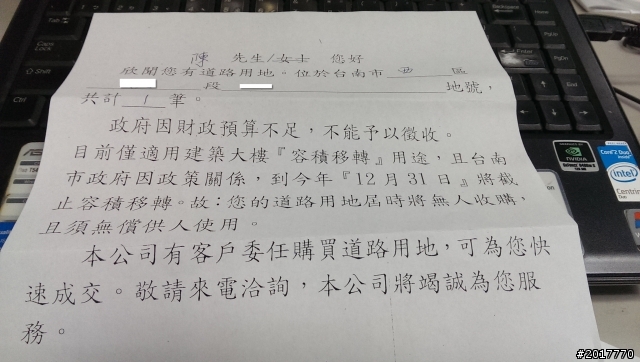 陳 先生/女士 您好
欣聞您有道路用地。位於台南市 西 區
段 地號，
共計 1 筆。
政府因財政預算不足，不能予以徵收。
目前僅適用建築大樓『容積移轉』用途，且台南
市政府因政策關係，到今年『12月31日』將截
止容積移轉。故：您的道路用地屆時將無人收購，
且須無償供人使用。
本公司有客戶委任購買道路用地，可為您快
速成交。敬請來電洽詢，本公司將竭誠為您服
務。
NVIDIA
Core 2 Duo
intel
Centrino
Caps Lock
#2017770